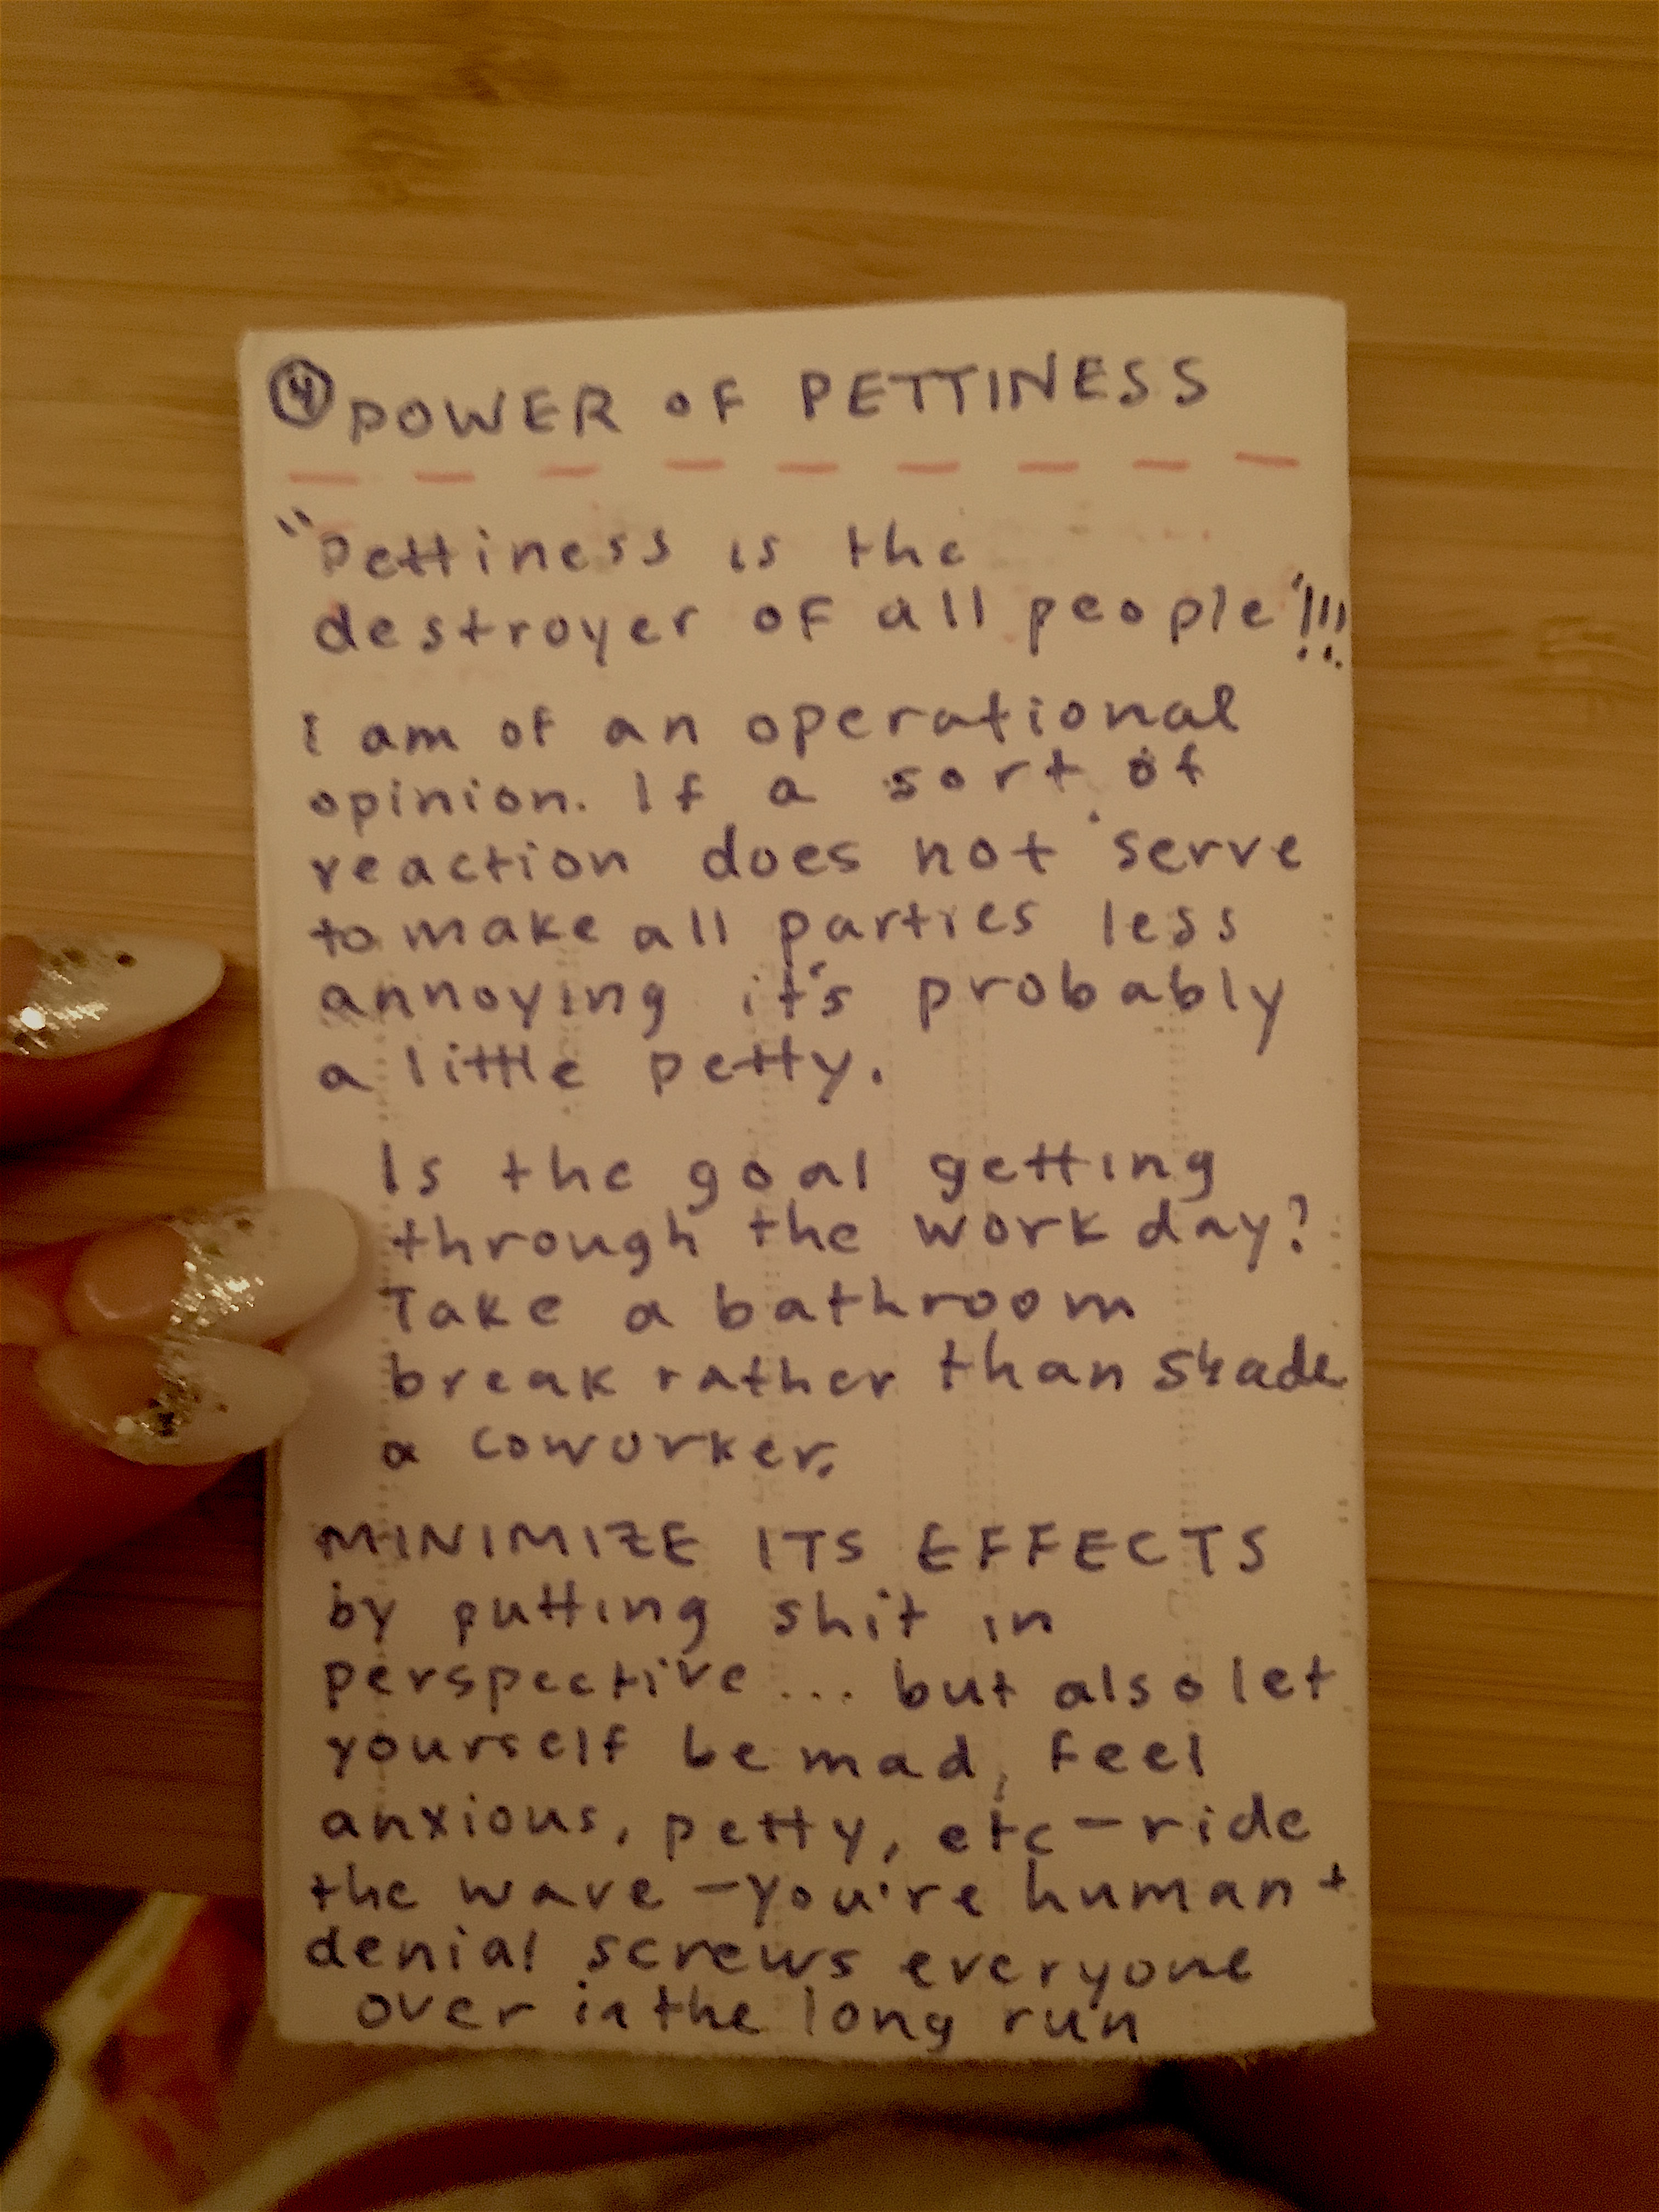 ④ POWER OF PETTINESS
"Pettiness is the
destroyer of all people"!!!
I am of an operational
opinion. If a sort of
reaction does not serve
to make all parties less
annoying it's probably
a little petty.
Is the goal getting
through the work day?
Take a bathroom
break rather than shade
a coworker.
MINIMIZE ITS EFFECTS
by putting shit in
perspective... but also let
yourself be mad, feel
anxious, petty, etc - ride
the wave - you're human +
denial screws everyone
over in the long run